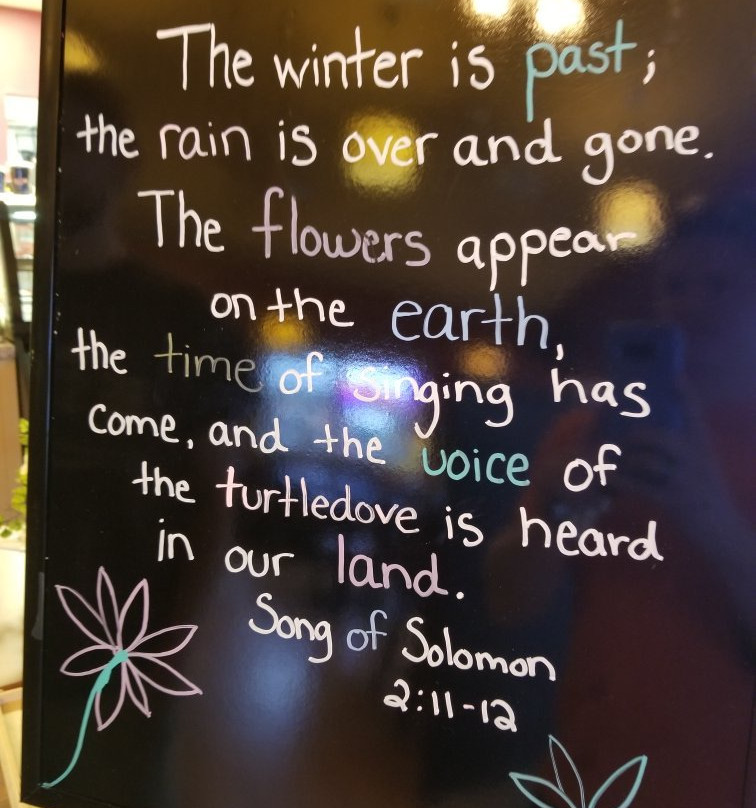 The winter is past;
the rain is over and gone.
The flowers appear
on the earth,
the time of singing has
come, and the voice of
the turtledove is heard
in our land.
Song of Solomon
2:11-12